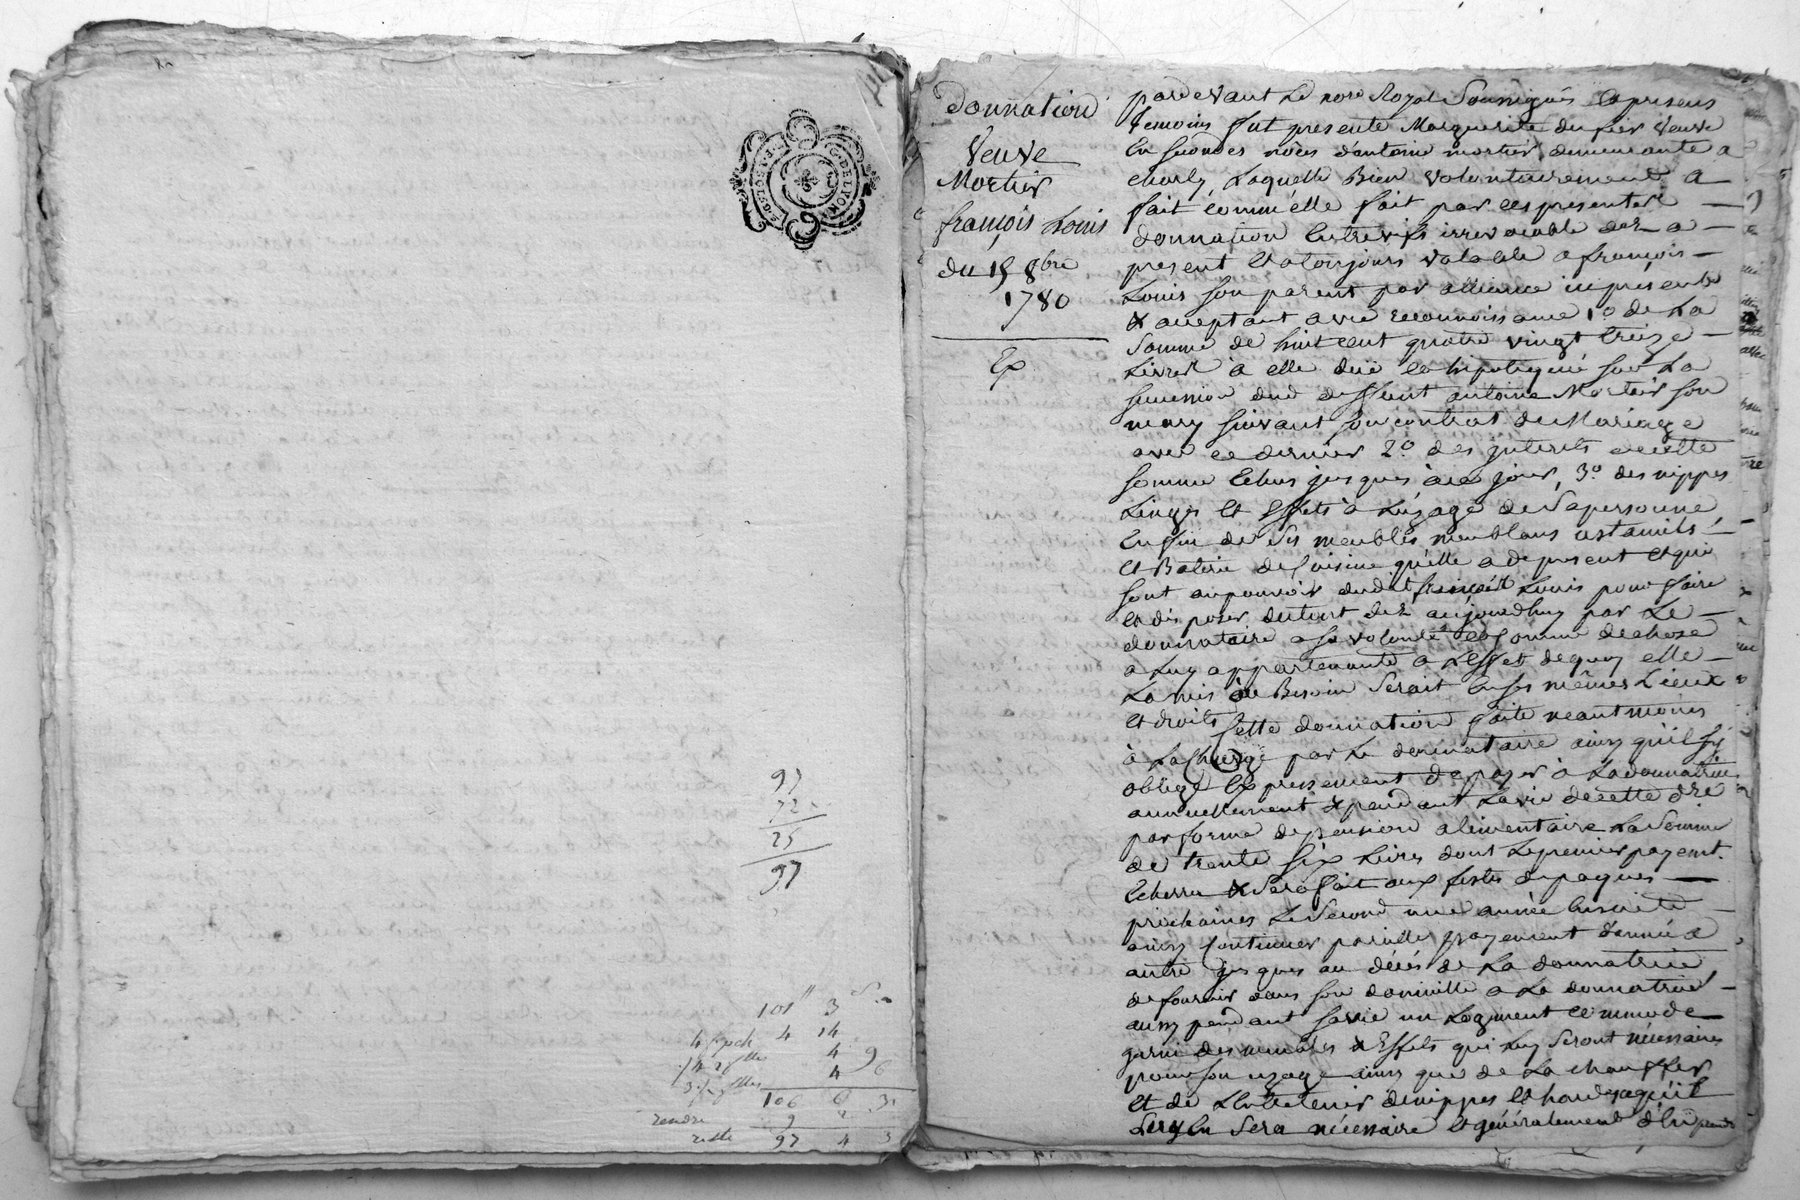 97
72
25
97
101 3
4 14
4 9
4 6
106 6 3
rendre 9
reste 97 4 3
Donnation
Veuve
Mortier
françois Louis
du 15 8bre
1780
Ex
pardevant Le nore Royal Soussigné Et presens
temoins fut presente Marguerite du fier Veuve
En secondes nôces d'antoine mortier demeurante a
Charly, Laquelle Bien volontairement a
fait comm'elle fait par ces presentes
donnation Entrevifs irrevocable dez a
present Et a toujours valable a françois
Louis son parent par alliance icy present
& acceptant avec reconnoissance 1o de La
Somme de huit cent quatre vingt treize
Livres à elle deüe Et hipotequé sur La
succession dud deffunt antoine Mortier son
mary suivant son contrat de Mariage
avec ce dernier 2o des interets de cette
somme Echus jusques à ce jour, 3o des nippes
Linges Et Effets à L'uzage de Sa personne
Enfin de Ses meubles meublans ustancils
Et Baterie de Cuisine qu'elle a de present Et qui
sont au pouvoir dudit françois Louis pour faire
Et disposer dutout dez aujourdhuy par Le
donnataire a sa volonté Et comme de chose
a Luy appartenante a L'Effet de quoy elle
La mis au Besoin Serait En ses mêmes Lieux
Et droits Cette donnation faite neantmoins
à La Charge par Le donnataire ainsy qu'il s'y
oblige Expressement de payer à La donnatrice
annuellement & pendant La vie de cette dre
par forme de pension alimentaire La Somme
de trente Six Livres dont Le premier payemt.
Echerra & Sera fait aux festes de paques
prochaines Le Second une année Ensuite
ainsy Continuer pareille payement d'année a
autre jusques au décés de La donnatrice
de fournir dans son domicille a La donnatrice
aussy pendant sa vie un Logment commode
garni des meubles & Effets qui Luy Seront nécessaires
pour son uzage ainsy que de La chauffer
Et de L'Entretenir de nippes Et hardes qu'il
Sera nécessaire Et généralement